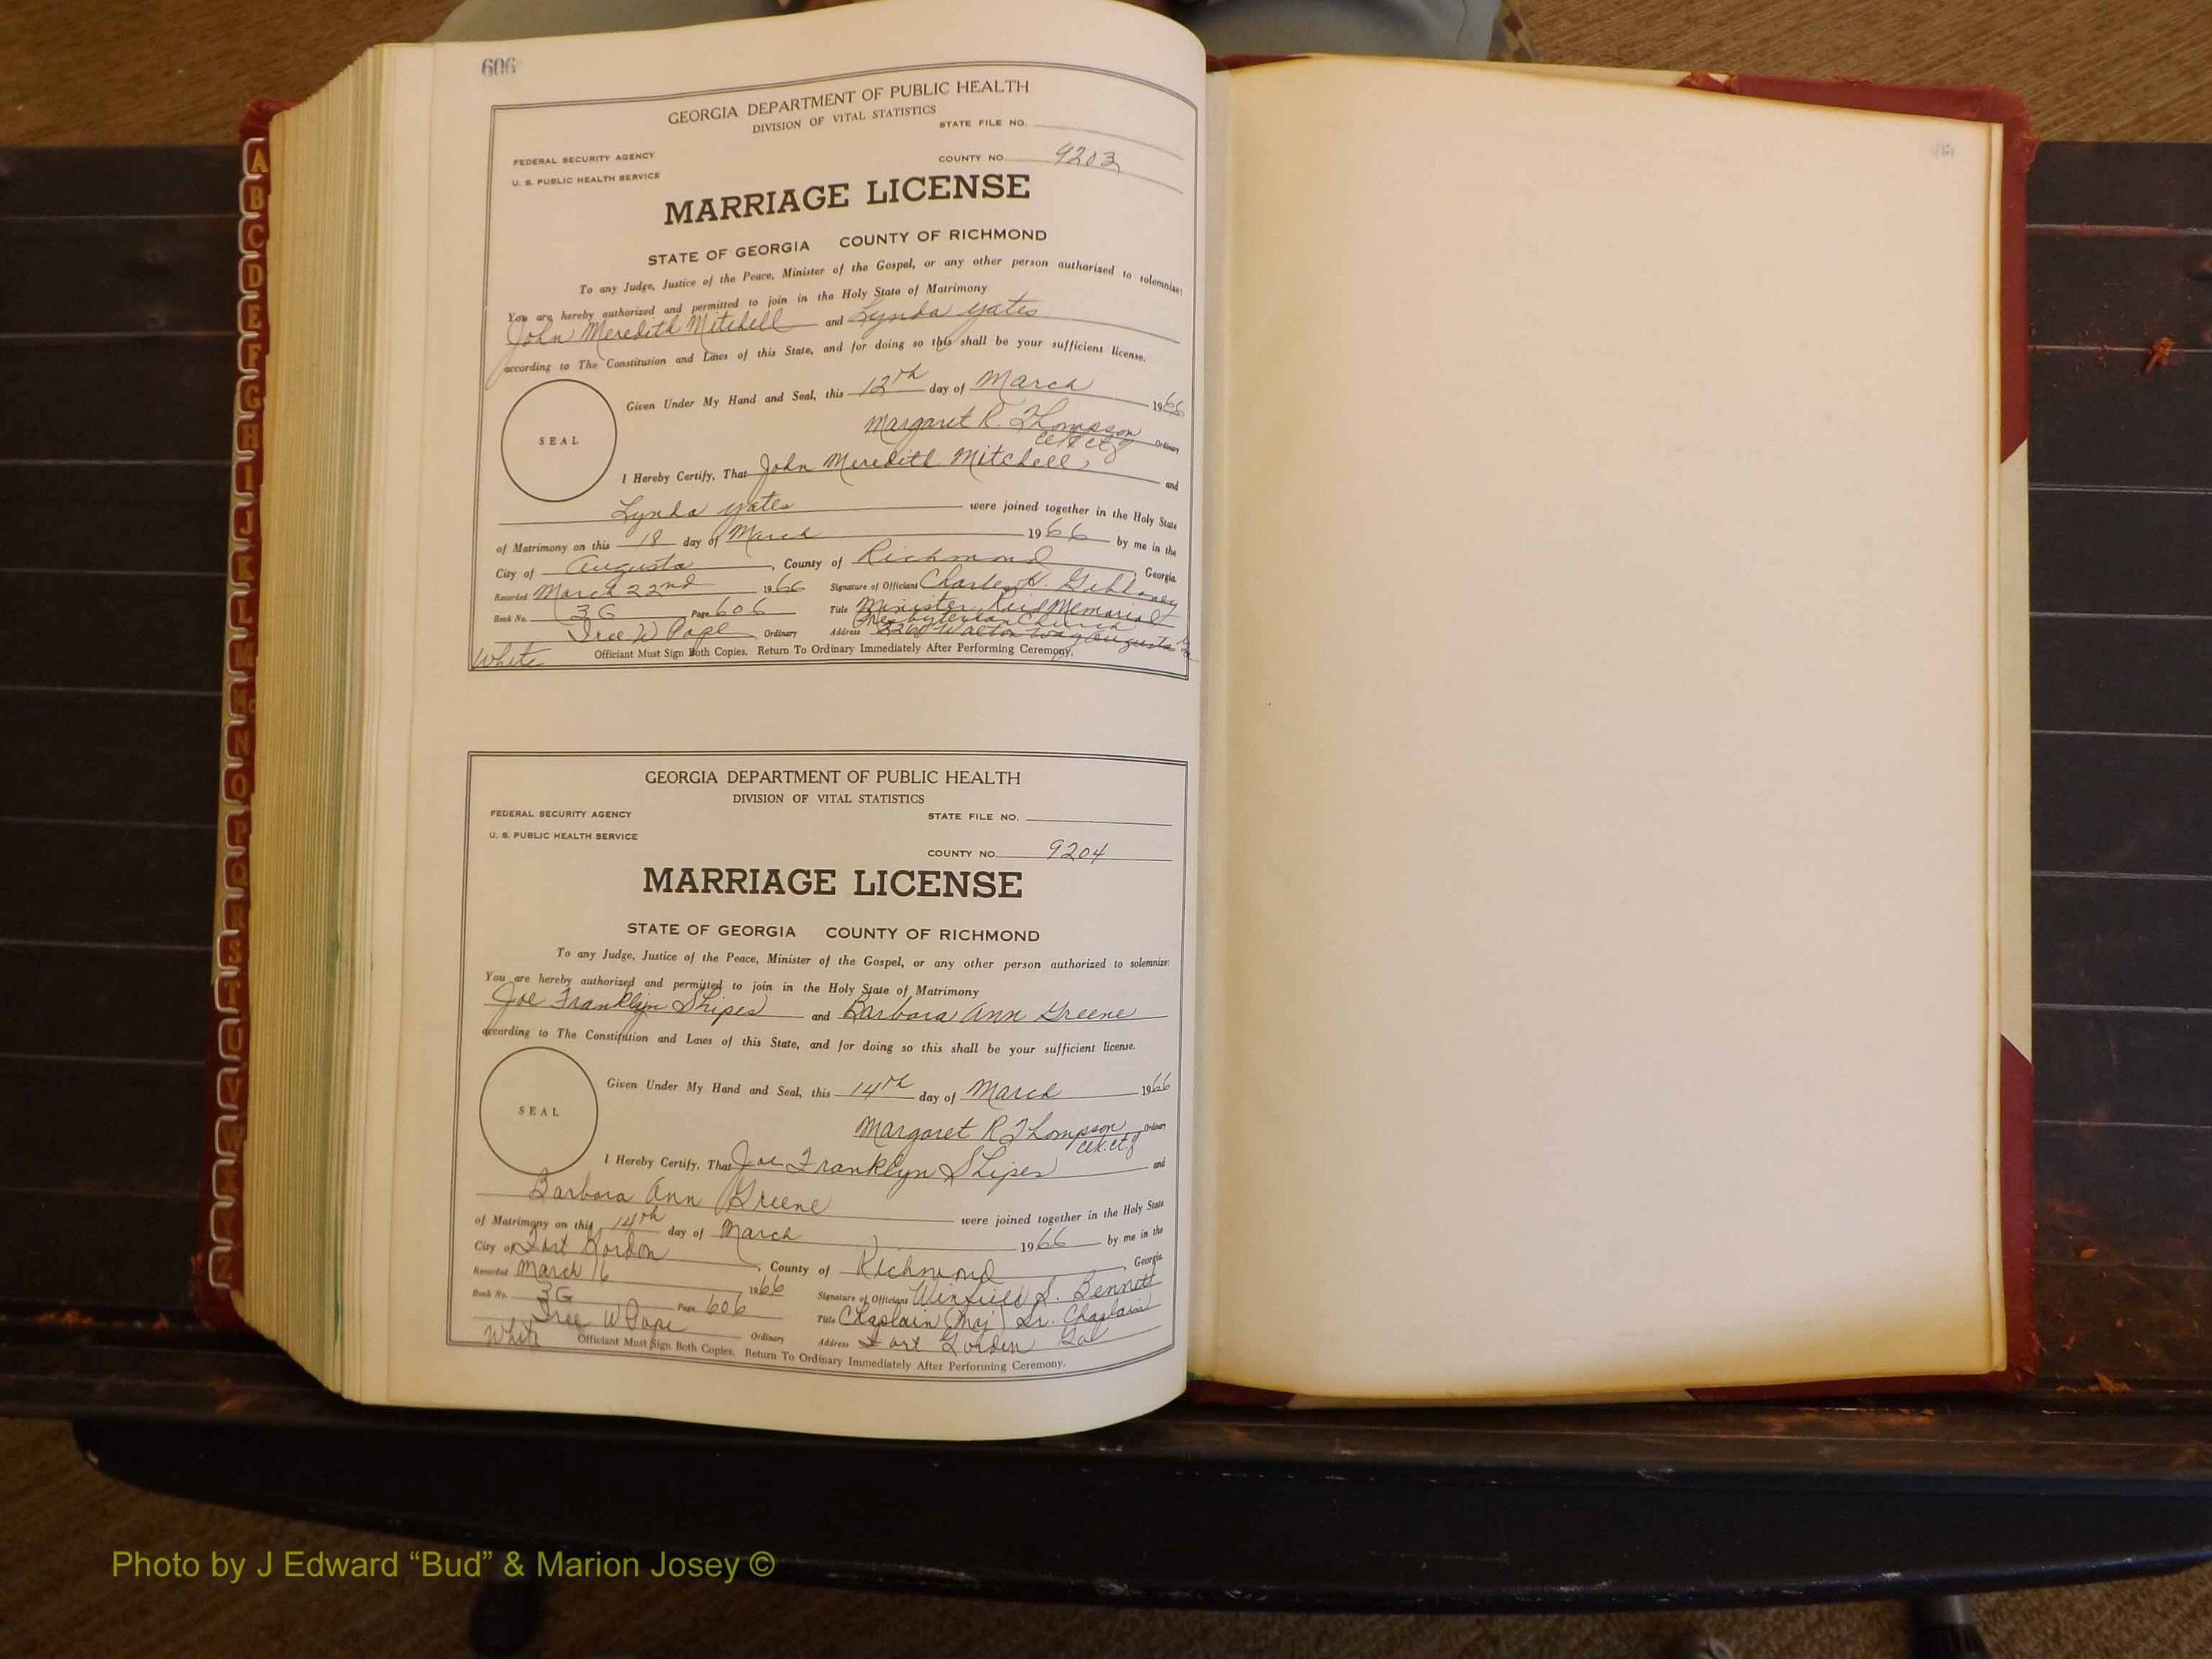 606
GEORGIA DEPARTMENT OF PUBLIC HEALTH
DIVISION OF VITAL STATISTICS
STATE FILE NO.
FEDERAL SECURITY AGENCY
COUNTY NO. 9203
U. S. PUBLIC HEALTH SERVICE
MARRIAGE LICENSE
STATE OF GEORGIA COUNTY OF RICHMOND
To any Judge, Justice of the Peace, Minister of the Gospel, or any other person authorized to solemnize:
You are hereby authorized and permitted to join in the Holy State of Matrimony
John Meredith Mitchell and Lynda Yates
according to The Constitution and Laws of this State, and for doing so this shall be your sufficient license.
Given Under My Hand and Seal, this 12th day of March 1966
SEAL
Margaret R. Thompson Ordinary
I Hereby Certify, That John Meredith Mitchell, and
Lynda Yates were joined together in the Holy State
of Matrimony on this 18 day of March 1966 by me in the
City of Augusta, County of Richmond, Georgia.
Recorded March 22nd 1966 Signature of Officiant Charles H.
Book No. 3G Page 606 Title Minister, Reid Memorial
Presbyterian Church
W Pope Ordinary Address Walton Way Augusta Ga
White Officiant Must Sign Both Copies. Return To Ordinary Immediately After Performing Ceremony.
GEORGIA DEPARTMENT OF PUBLIC HEALTH
DIVISION OF VITAL STATISTICS
FEDERAL SECURITY AGENCY
STATE FILE NO.
U. S. PUBLIC HEALTH SERVICE
COUNTY NO. 9204
MARRIAGE LICENSE
STATE OF GEORGIA COUNTY OF RICHMOND
To any Judge, Justice of the Peace, Minister of the Gospel, or any other person authorized to solemnize:
You are hereby authorized and permitted to join in the Holy State of Matrimony
Joe Franklyn Shipes and Barbara Ann Greene
according to The Constitution and Laws of this State, and for doing so this shall be your sufficient license.
Given Under My Hand and Seal, this 14th day of March 1966
SEAL
Margaret R Thompson Ordinary
I Hereby Certify, That Joe Franklyn Shipes and
Barbara Ann Greene were joined together in the Holy State
of Matrimony on this 14th day of March 1966 by me in the
City of Fort Gordon, County of Richmond, Georgia.
Recorded March 16 1966 Signature of Officiant Winfield S. Bennett
Book No. 3G Page 606 Title Chaplain (Maj) Sr. Chaplain
W Pope Ordinary Address Fort Gordon
White Officiant Must Sign Both Copies. Return To Ordinary Immediately After Performing Ceremony.
A
B
C
D
E
F
G
H
I
J
K
L
M
Mc
N
O
P
Q
R
S
T
U
V
W
X
Y
Z
Photo by J Edward “Bud” & Marion Josey ©